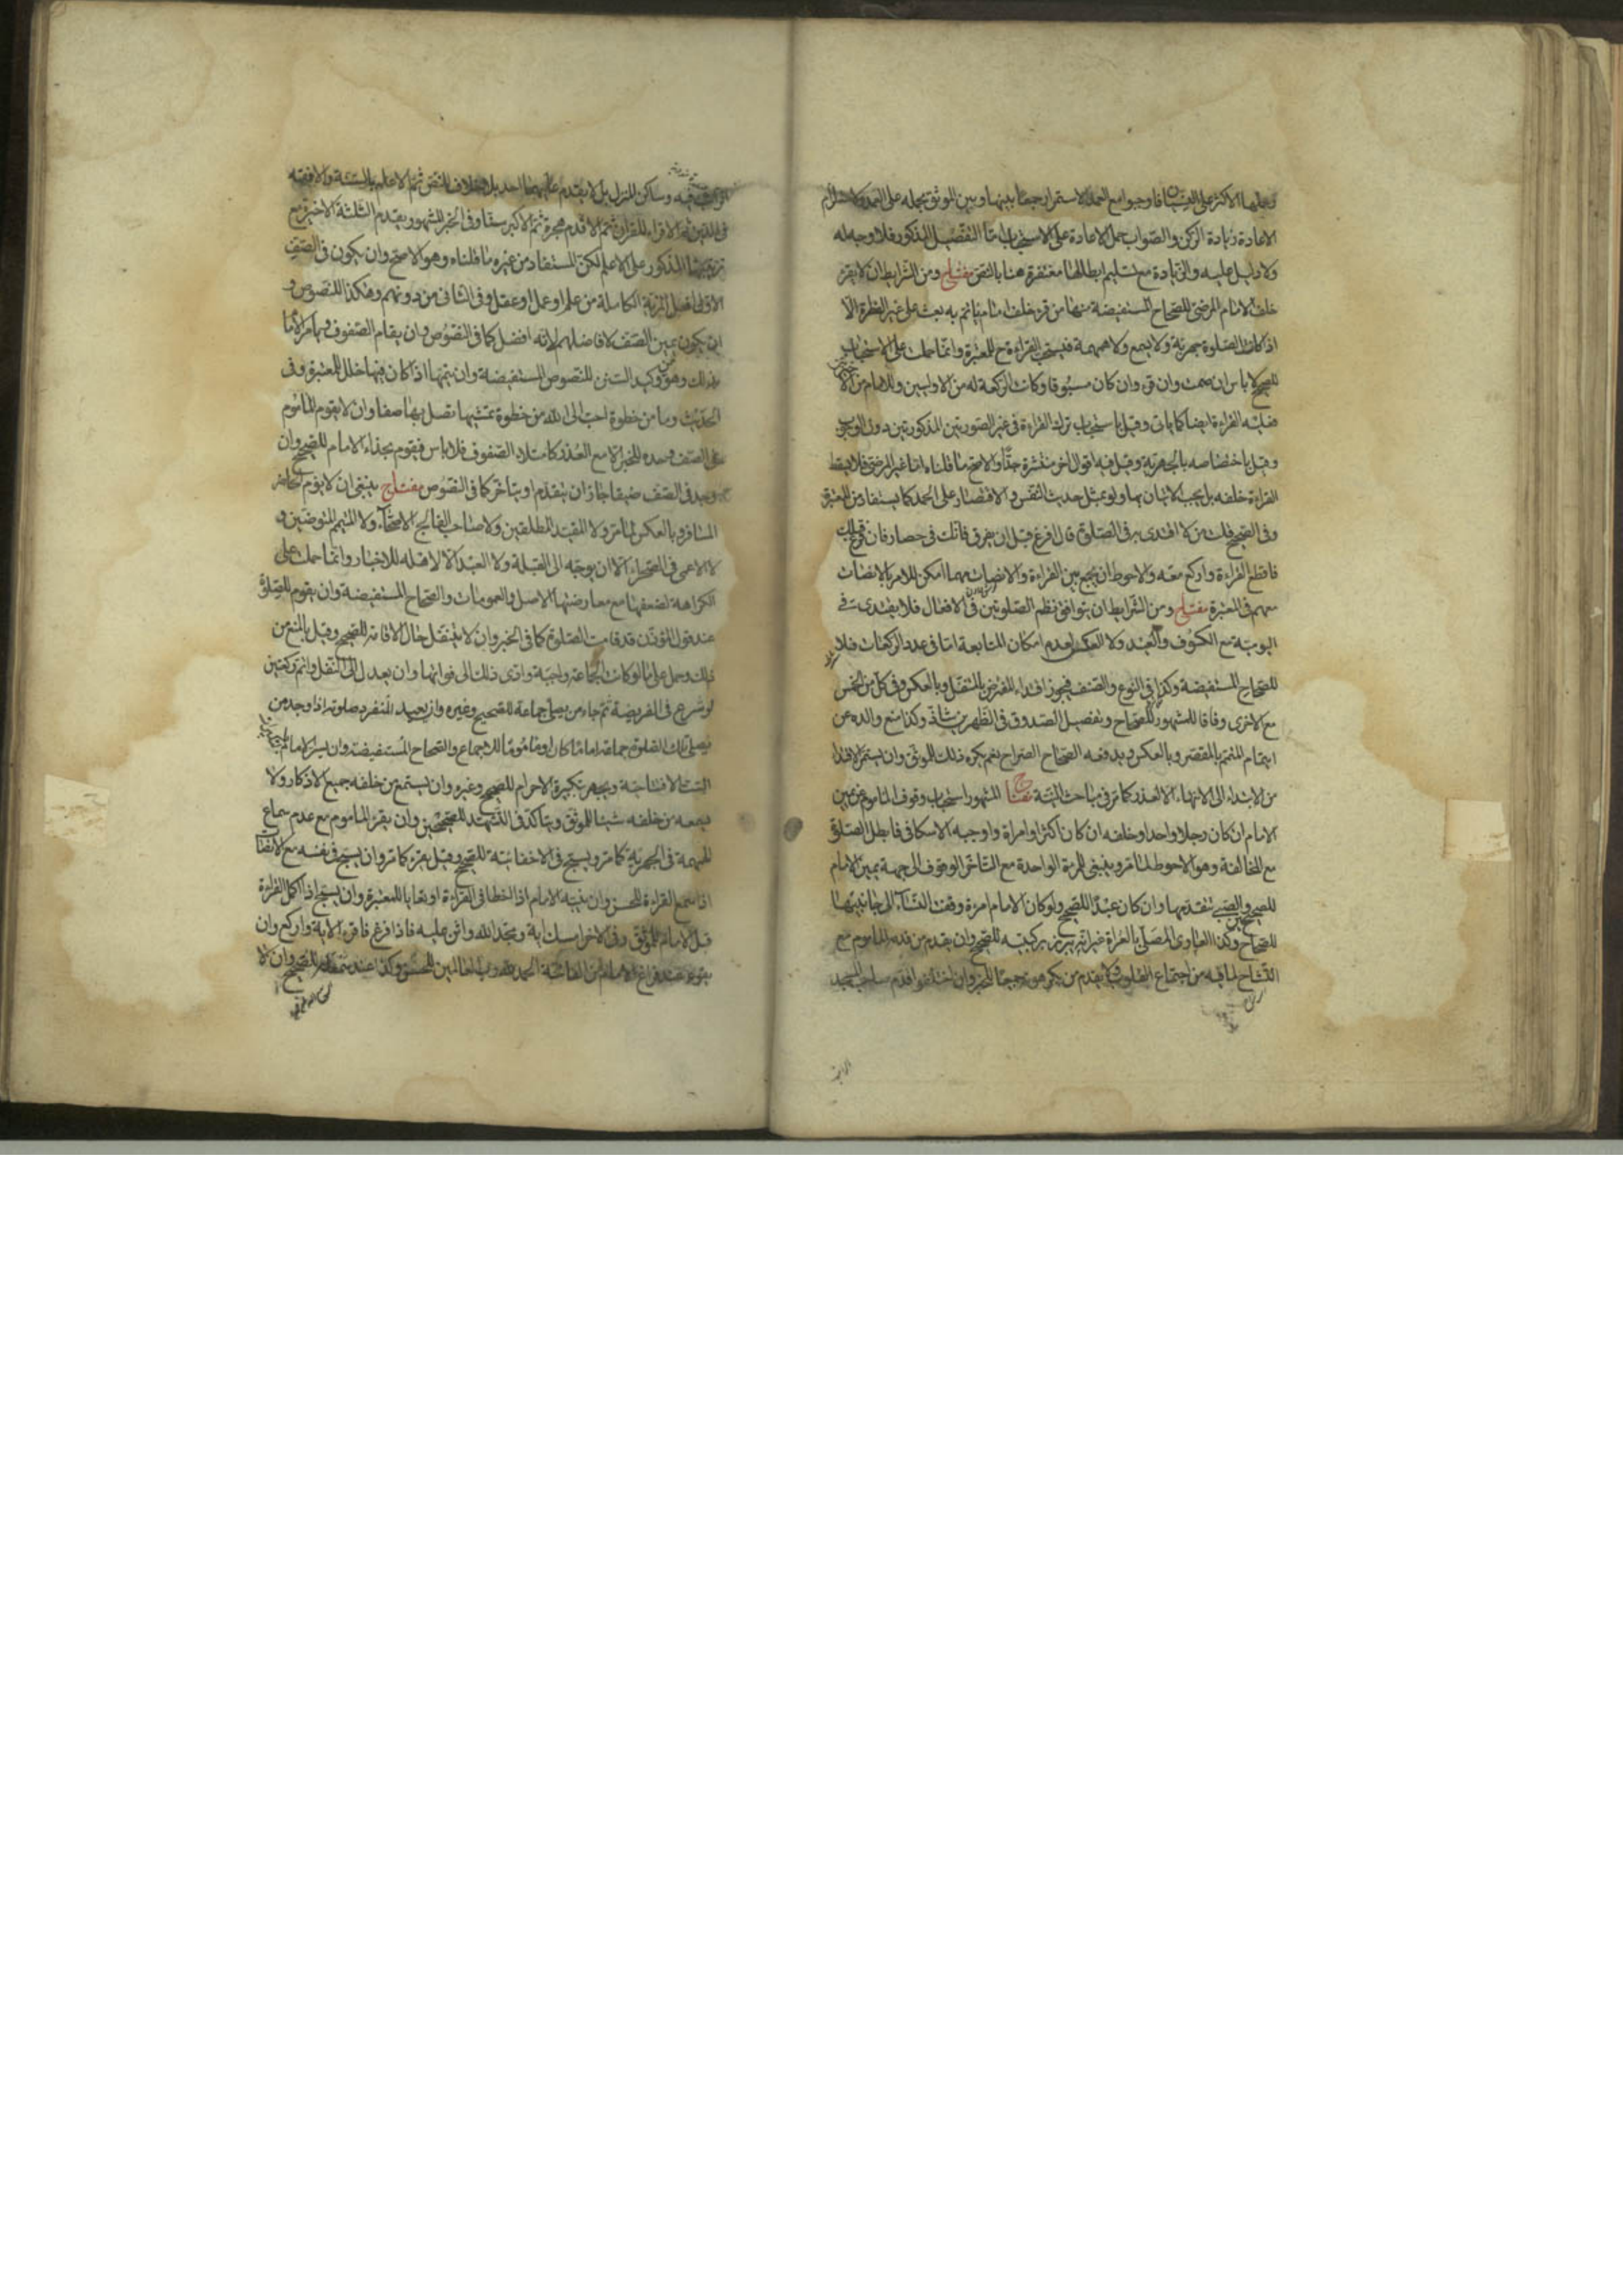 وحملها الاكثر على النسيان فاوجبوا مع العمد الاستمرار جمعا بينها وبين الموثق بحمله على العمد
الاعادة زيادة الركن والصواب حمل الاعادة على الاستحباب اما التفصيل المذكور فلا وجه له
ولا دليل عليه والزيادة مع تسليم ابطالها مغتفرة هنا بالنص مفتاح ومن الشرايط ان لا يقرء
خلف الامام المرضى للصحاح المستفيضة منها من قرء خلف امام ياتم به بعث على غير الفطرة الا
اذا كانت الصلوة جهرية ولا يسمع ولا همهمة فيستحب القراءة ح للمعتبرة وانما حملت على الاستحباب
للصحيح لا باس ان صمت وان قرء وان كان مسبوقا وكانت الركعة له من الاوليين وللامام من الاخيرتين
فعليه القراءة ايضا كما ياتى وقيل باستحباب ترك القراءة فى غير الصورتين المذكورتين دون الوجوب
وقيل باختصاصه بالجهرية وقيل فيه اقوال اخر منتشرة جدا والاصح ما قلناه اما غير المرضى فلا يسقط
القراءة خلفه بل يجب الاتيان بها ولو بمثل حديث النفس والاقتصار على الحمد كما يستفاد من المعتبرة
وفى الصحيح قلت من لا اقتدى به فى الصلوة قال افرغ قبل ان يفرغ فانك فى حصار فان فرغ قبلك
فاقطع القراءة واركع معه والاحوط ان يجمع بين القراءة والانصات مهما امكن للامر بالانصات
معهم فى المعتبرة مفتاح ومن الشرايط ان يتوافق نظم الصلوتين فى الافعال فلا يقتدى فى
اليومية مع الكسوف والعيد ولا العكس لعدم امكان المتابعة اما فى عدد الركعات فلا
للصحاح المستفيضة وكذا فى النوع والصنف فيجوز اقتداء المفترض بالمتنفل وبالعكس وفى كل من الخمس
مع الاخرى وفاقا للمشهور للصحاح وتفصيل الصدوق فى الظهرين شاذ وكذا منع والده عن
ايتمام المتمم بالمقصر وبالعكس ويدفعه الصحاح الصراح نعم يكره ذلك للموثق وان يستمر الاقتداء
من الابتداء الى الانتهاء الا لعذر كما مر فى مباحث النية مفتاح المشهور استحباب وقوف الماموم عن يمين
الامام ان كان رجلا واحدا وخلفه ان كان اكثر او امراة واوجبه الاسكافى فابطل الصلوة
مع المخالفة وهو الاحوط لما مر وينبغى للمرءة الواحدة مع التاخر الوقوف الى جهة يمين الامام
للصحيح والصبى يتقدمها وان كان عبدا للصحيح ولو كان الامام امرءة وقفت النساء الى جانبيها
للصحاح وكذا العارى المصلى بالعراة غير انه يبرز بركبتيه للصحيح وان يقدم من قدمه الماموم مع
التشاح لما فيه من اجتماع القلوب ولا يقدم من يكرهونه جميعا للخبر وان اختلفوا قدم صاحب المسجد
الراتب فيه وساكن المنزل بل لا يقدم عليهما احد بلا خلاف للنص ثم الاعلم بالسنة والافقه
فى الدين ثم الاقرء للقران ثم الاقدم هجرة ثم الاكبر سنا وفى الخبر المشهور يقدم الثلثة الاخيرة مع
ترتيبها المذكور على الاعلم لكن المستفاد من غيره ما قلناه وهو الاصح وان يكون فى الصف
الاول اهل المزية الكاملة من علم او عمل او عقل وفى الثانى من دونهم وهكذا للنصوص و
ان يكون يمين الصف لافاضلهم لانه افضل كما فى النصوص وان يقام الصفوف ويامر الامام
بذلك وهو من وكيد السنن للنصوص المستفيضة وان يتمها اذا كان فيها خلل للمعتبرة وفى
الحديث وما من خطوة احب الى الله من خطوة تمشيها تصل بها صفا وان لا يقوم الماموم
على الصف وحده للخبر الا مع العذر كامتلاء الصفوف فلا باس فيقوم بحذاء الامام للصحيح وان
وجد فى الصف ضيقا جاز ان يتقدم او يتاخر كما فى النصوص مفتاح ينبغى ان لا يؤم الحاضر
المسافر وبالعكس لما مر ولا المقيد المطلقين ولا صاحب الفالج الاصحاء ولا المتيمم المتوضين و
لا الاعمى فى الصحراء الا ان يوجه الى القبلة ولا العبد الا لاهله للاخبار وانما حملت على
الكراهة لضعفها مع معارضتها الاصل والعمومات والصحاح المستفيضة وان يقوم للصلوة
عند قول المؤذن قد قامت الصلوة كما فى الخبر وان لا يتنفل حال الاقامة للصحيح وقيل بالمنع من
ذلك وحمل على ما لو كانت الجماعة واجبة وادى ذلك الى فواتها وان يعدل الى النفل واتم ركعتين
لو شرع فى الفريضة ثم جاء من يصلى جماعة للصحيح وغيره وان يعيد المنفرد صلوته اذا وجد من
يصلى تلك الصلوة جماعة اماما كان او ماموما للاجماع والصحاح المستفيضة وان يسر الامام
الست الافتتاحية ويجهر بتكبيرة الاحرام للصحيح وغيره وان يستمع من خلفه جميع الاذكار ولا
يسمعه من خلفه شيئا للموثق ويتاكد فى التشهد للصحيحين وان يقرء الماموم مع عدم سماع
الهمهمة فى الجهرية كما مر ويسبح فى الاخفاتية للصحيح وقيل يقرء كما مر وان يسبح فى نفسه مع الانصات
اذا سمع القراءة للحسن وان ينبه الامام اذا اخطا فى القراءة او بقايا للمعتبرة وان يسبح اذا اكمل القراءة
قبل الامام للموثق وفى الاخر امسك اية ومجد الله واثن عليه فاذا فرغ فاقرء الاية واركع وان
يقول عند فراغ الامام من الفاتحة الحمد لله رب العالمين للحسن وكذا عند للصحيح وان لا